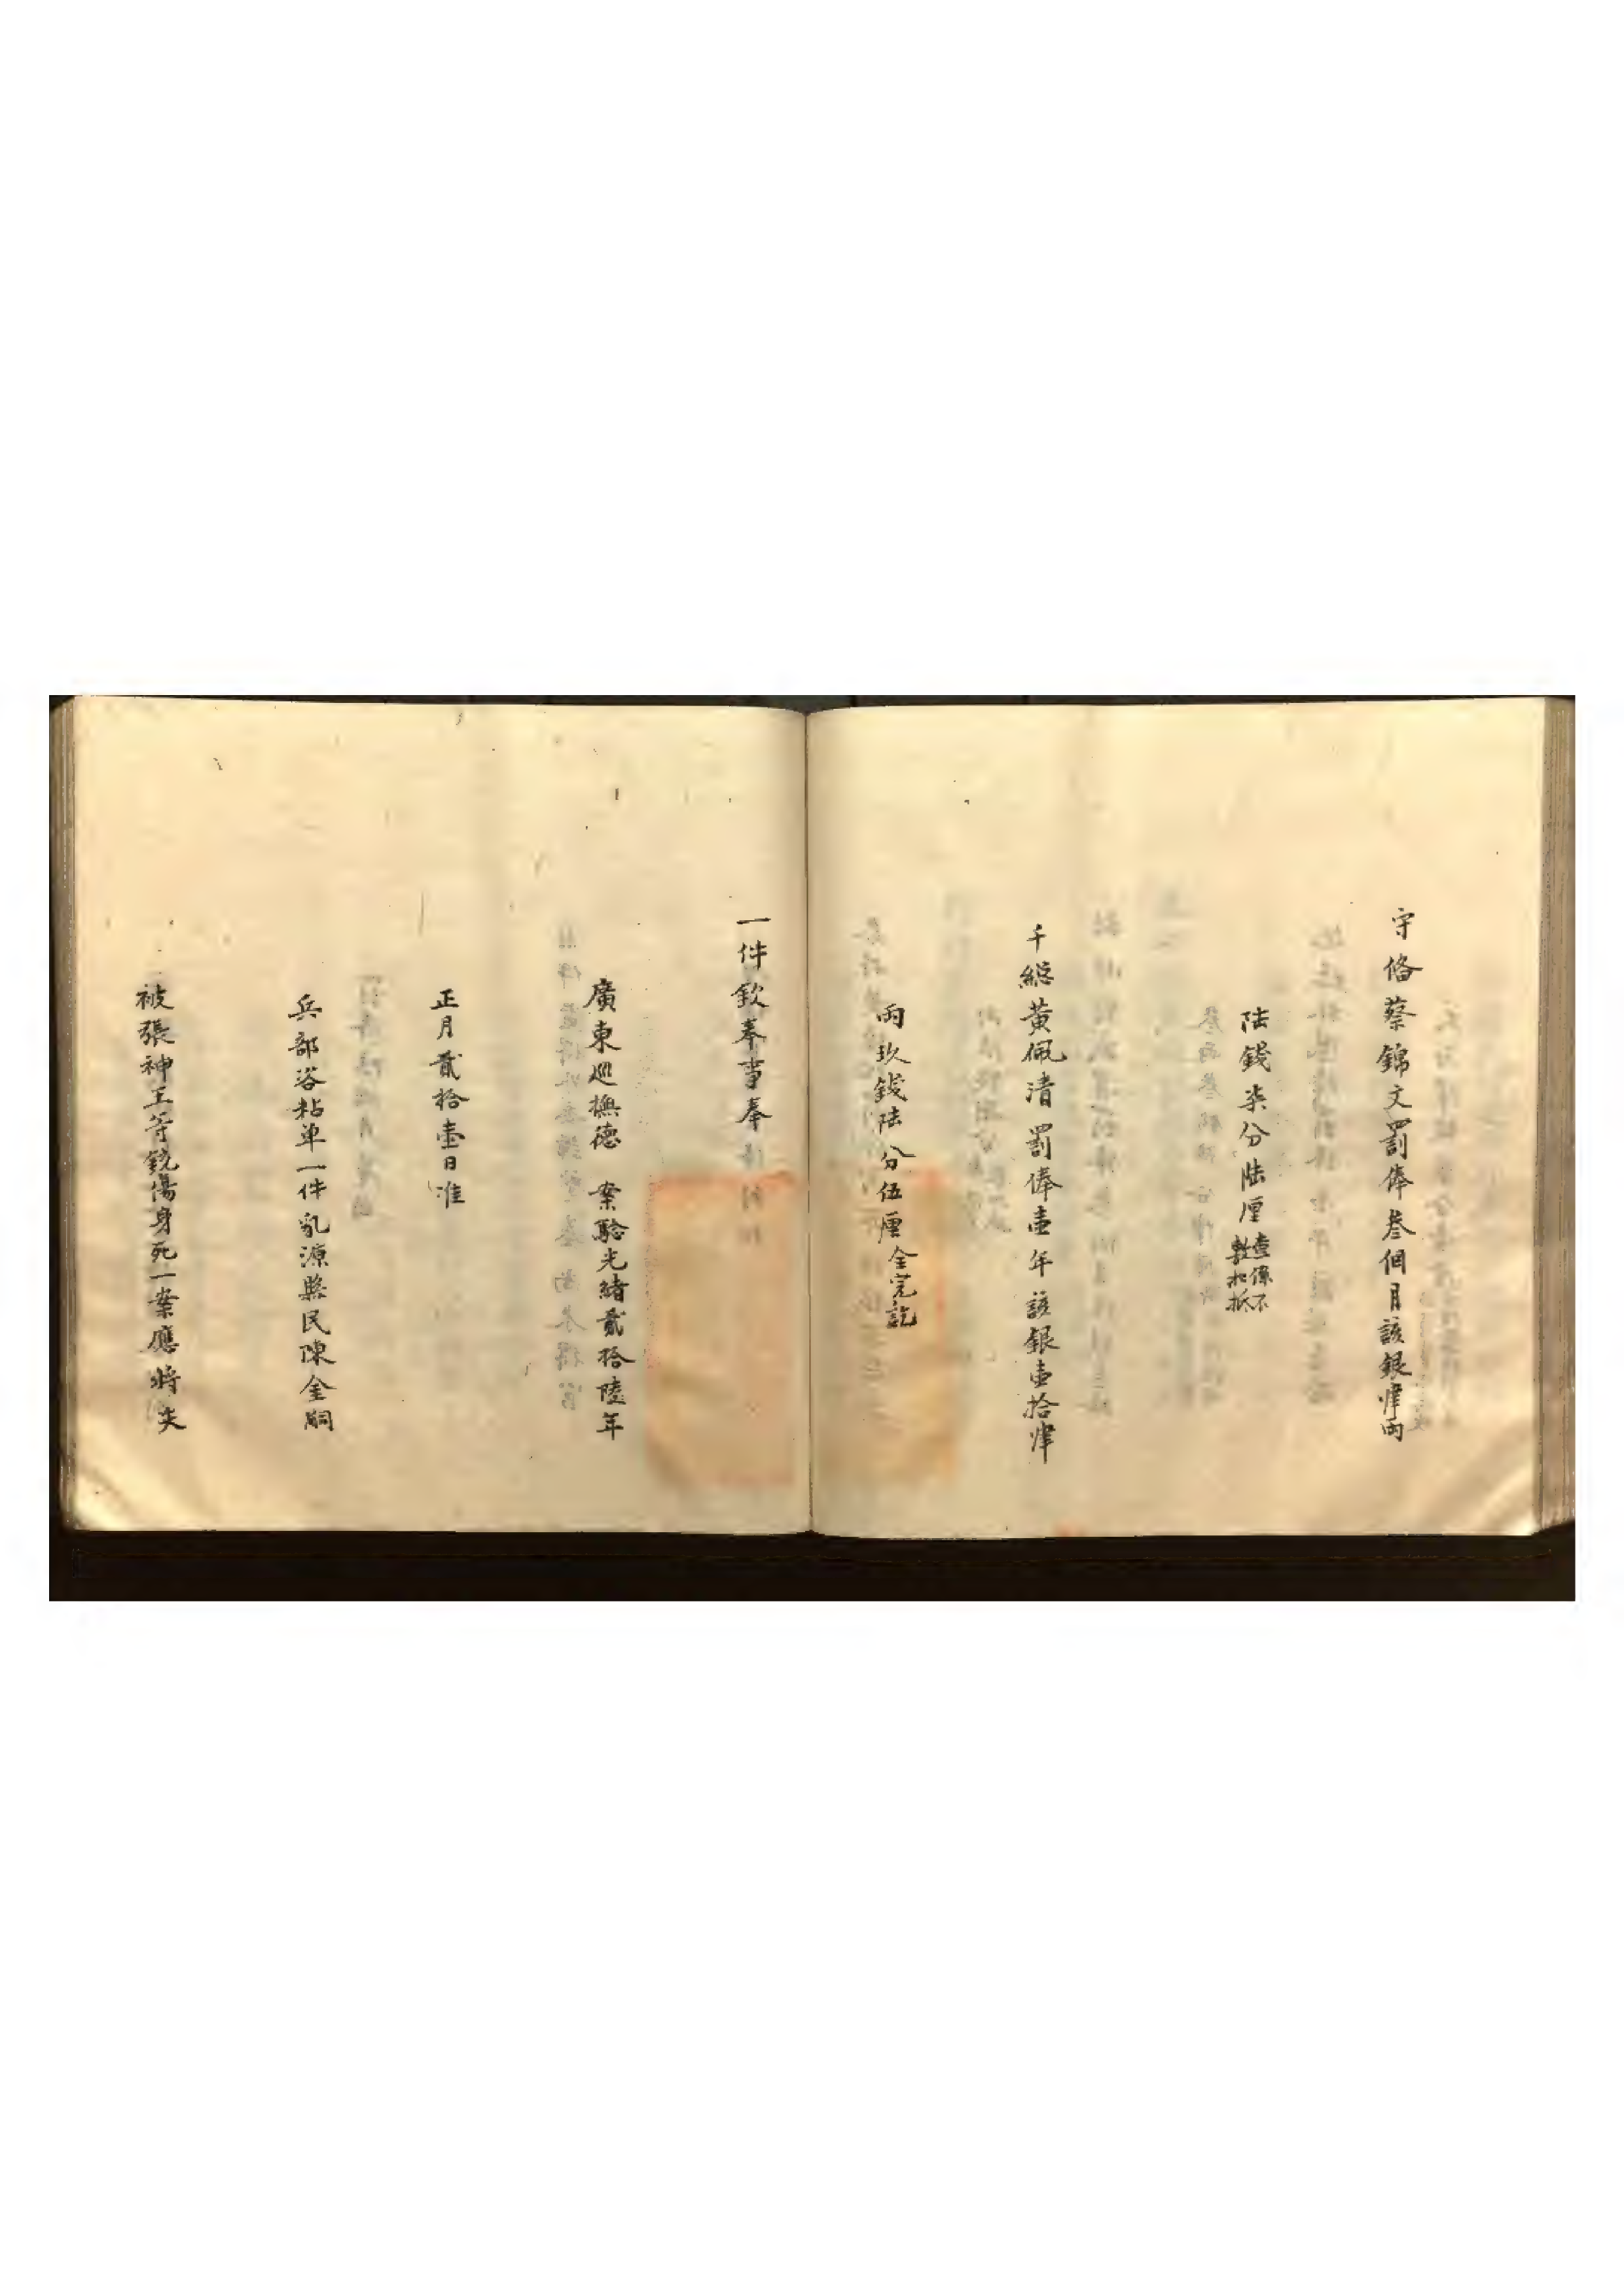 守俻蔡錦文罰俸叁個月該銀肆兩
陸錢柒分陸厘查係不敷扣抵
千総黃佩清罰俸壹年該銀壹拾肆
兩玖錢陸分伍厘全完訖
一件欽奉事奉
廣東廵撫德 案驗光緒貳拾陸年
正月貳拾壹日准
兵部咨粘单一件乳源縣民陳金嗣
被張神王等銃傷身死一案應將失